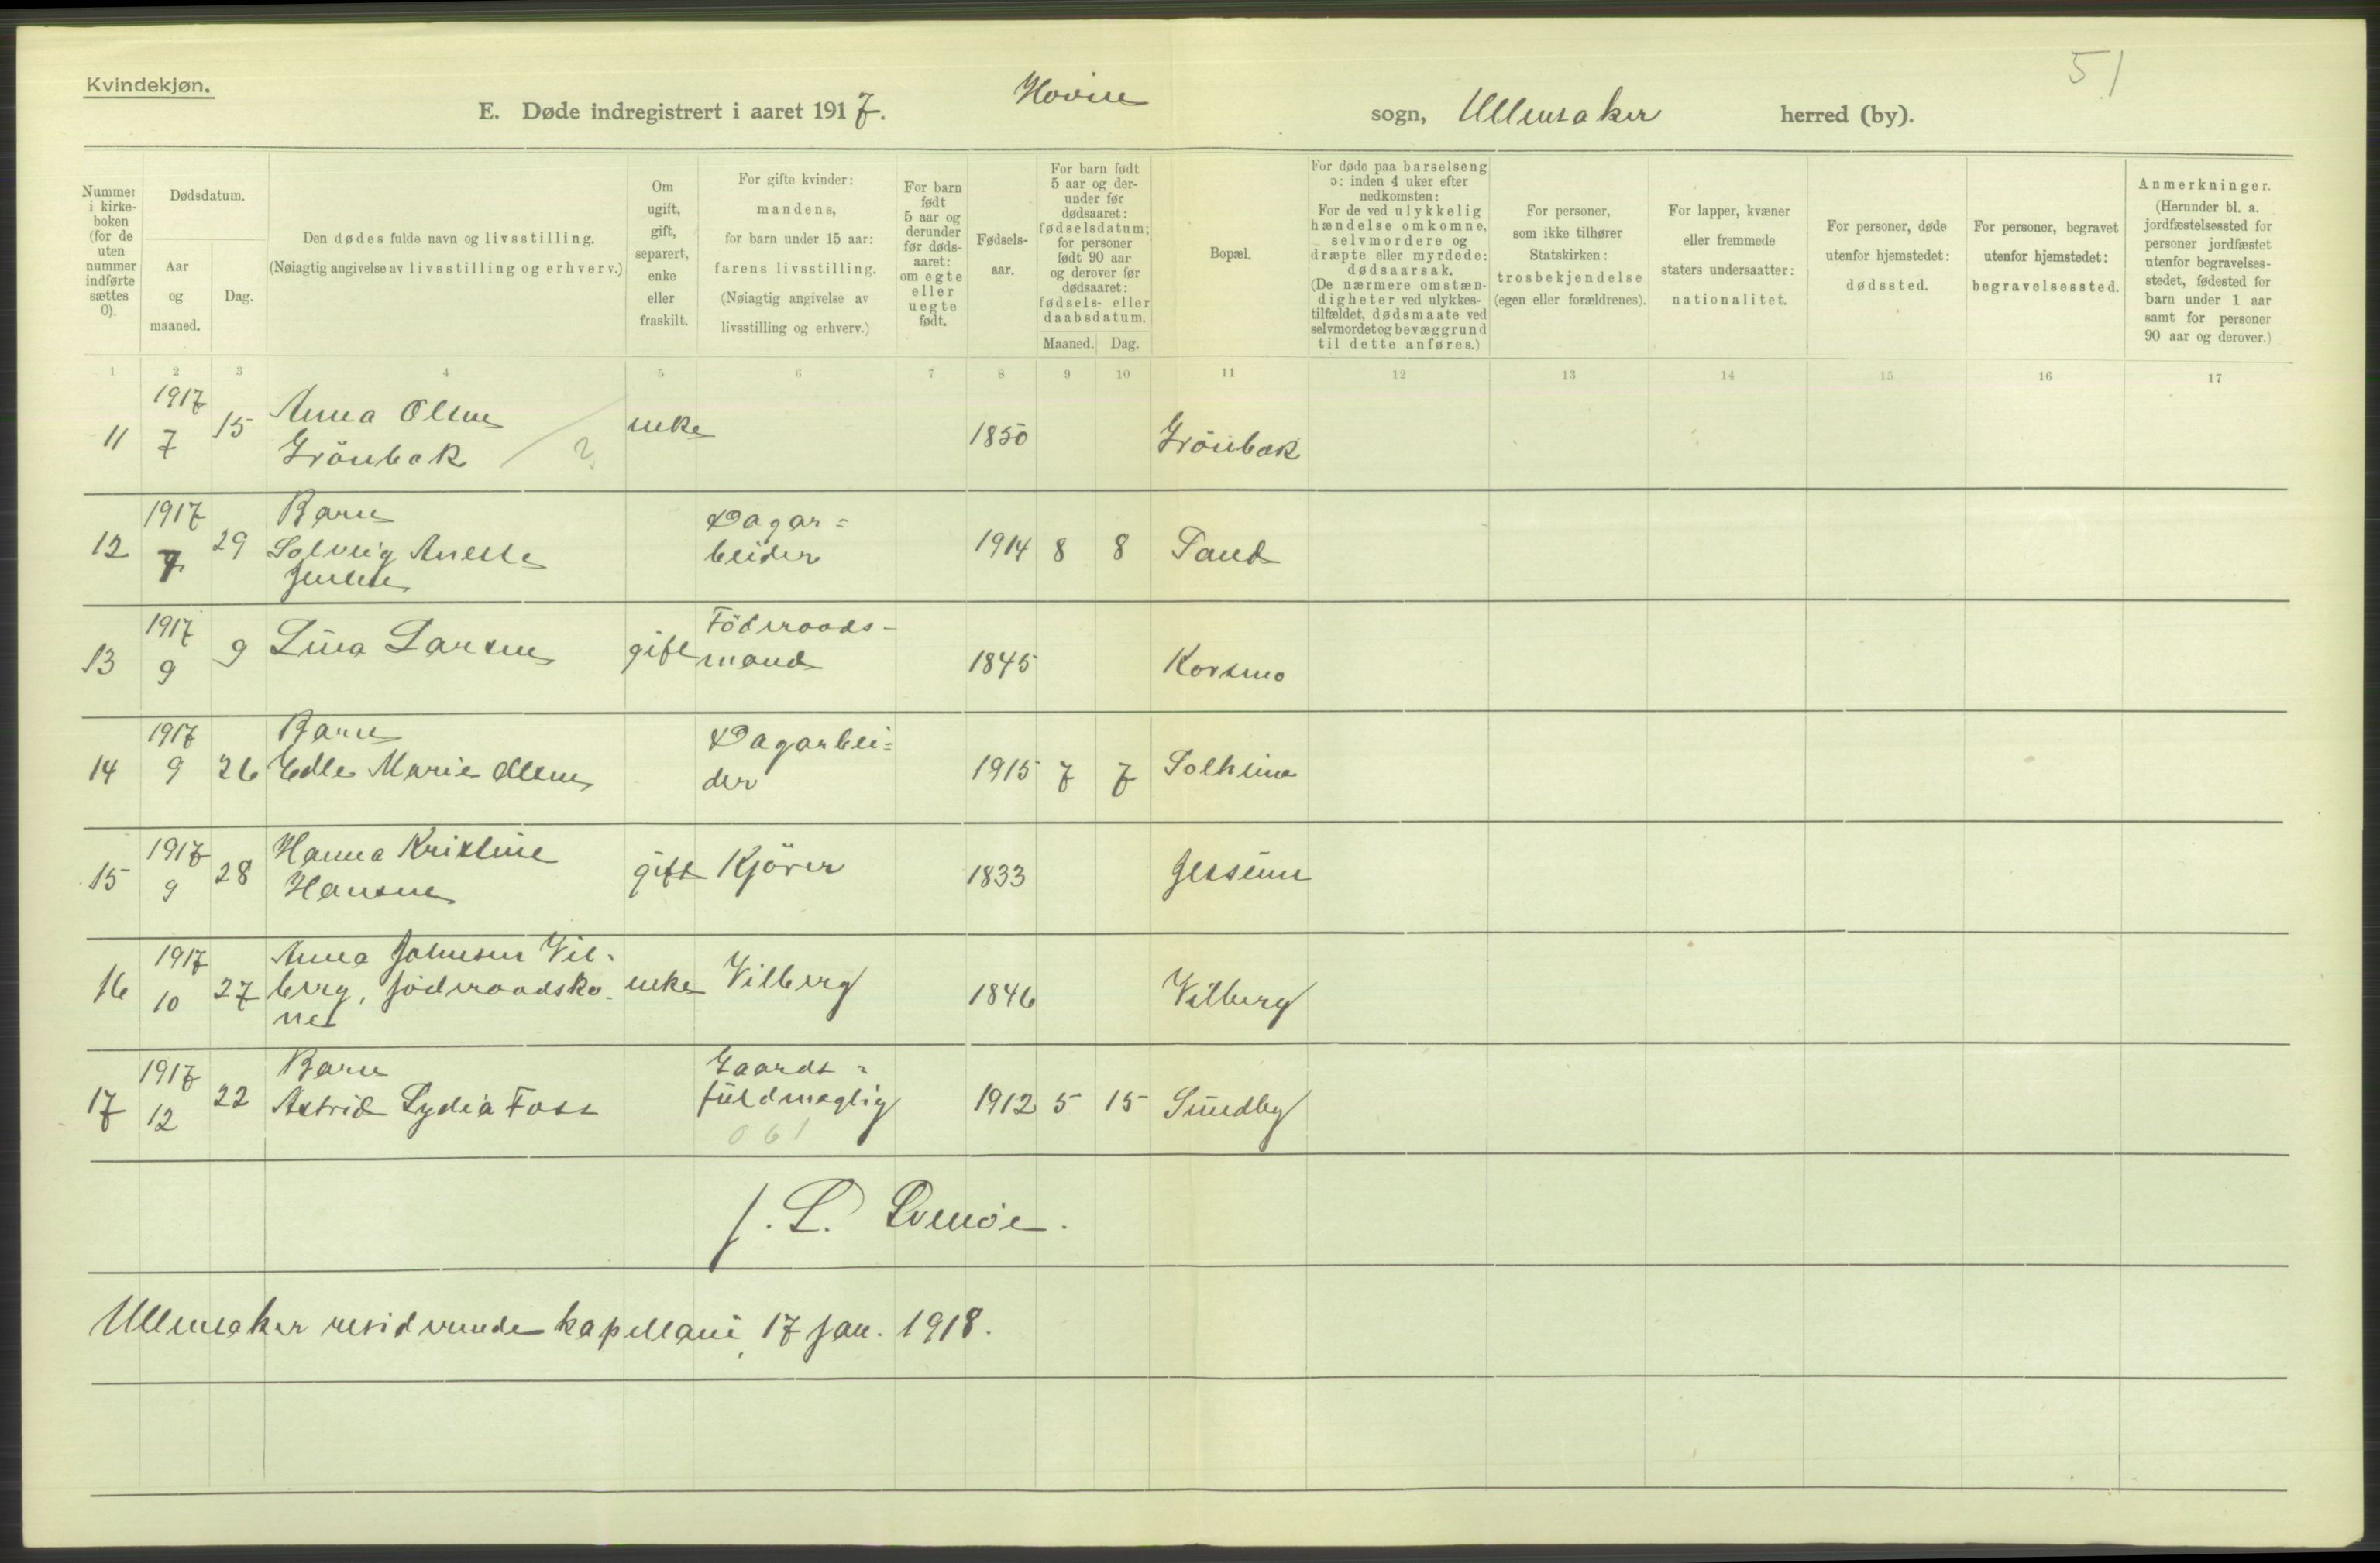 51
Kvindekjøn.
E. Døde indregistrert i aaret 1917. Hovin sogn, Ullensaker herred (by).
Nummer i kirkeboken (for de uten nummer indførte sættes 0).
Dødsdatum.
Aar og maaned.
Dag.
Den dødes fulde navn og livsstilling.
(Nøiagtig angivelse av livsstilling og erhverv.)
Om ugift, gift, separert, enke eller fraskilt.
For gifte kvinder: mandens, for barn under 15 aar: farens livsstilling. (Nøiagtig angivelse av livsstilling og erhverv.)
For barn født 5 aar og derunder før dødsaaret: om egte eller uegte født.
Fødselsaar.
For barn født 5 aar og derunder før dødsaaret: fødselsdatum; for personer født 90 aar og derover før dødsaaret: fødsels- eller daabsdatum.
Maaned. Dag.
Bopæl.
For døde paa barselseng ɔ: inden 4 uker efter nedkomsten: For de ved ulykkelig hændelse omkomne, selvmordere og dræpte eller myrdede: dødsaarsak. (De nærmere omstændigheter ved ulykkestilfældet, dødsmaate ved selvmordet og bevæggrund til dette anføres.)
For personer, som ikke tilhører Statskirken: trosbekjendelse (egen eller forældrenes).
For lapper, kvæner eller fremmede staters undersaatter: nationalitet.
For personer, døde utenfor hjemstedet: dødssted.
For personer, begravet utenfor hjemstedet: begravelsessted.
Anmerkninger. (Herunder bl. a. jordfæstelsessted for personer jordfæstet utenfor begravelsesstedet, fødested for barn under 1 aar samt for personer 90 aar og derover.)
1 2 3 4 5 6 7 8 9 10 11 12 13 14 15 16 17
11 1917 7 15 Anna Olsen Grönbæk enke 1850 Grönbæk
12 1917 7 29 Barn Solveig Jensen Dagarbeider 1914 8 8 Sand
13 1917 9 9 Lina Larsen gift Föderaadsmand 1845 Korsmo
14 1917 9 26 Barn Edle Marie Olsen Dagarbeider 1915 7 7 Solheim
15 1917 9 28 Hanna Kristine Hansen gift Kjörer 1833 Jesseim
16 1917 10 27 Anna Johnsen Vilberg, föderaadskone enke Vilberg 1846 Vilberg
17 1917 12 22 Barn Astrid Lydia Foss Gaardsfuldmægtig 1912 5 15 Sundby
061
Ullensaker residerende kapellani, 17 jan. 1918.